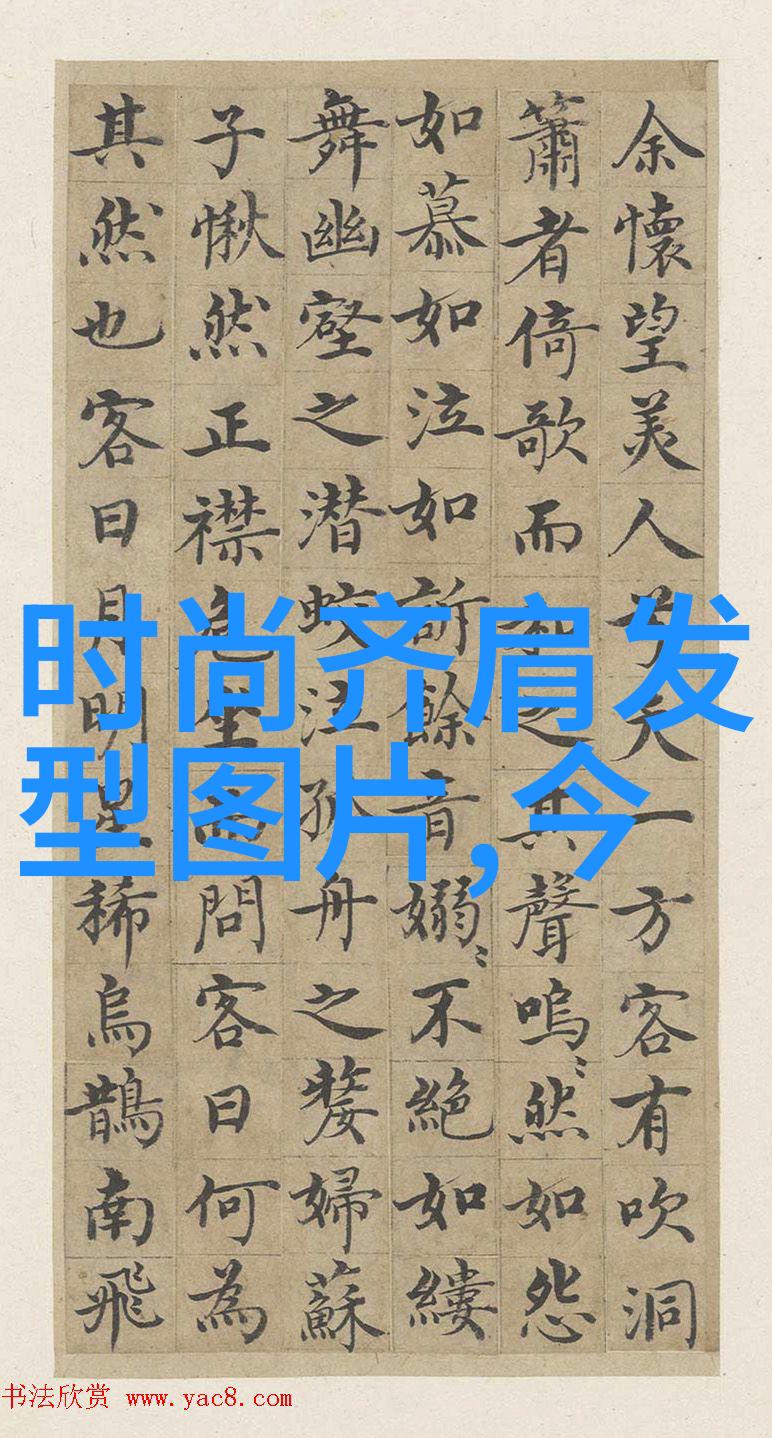 余懷望美人兮天一方客有吹洞
簫者倚歌而和之其聲嗚〻然如怨
如慕如泣如訴餘音嫋〻不絕如縷
舞幽壑之潜蛟泣孤舟之嫠婦蘇
子愀然正襟危坐而問客曰何為
其然也客曰月明星稀烏鵲南飛
时尚齐肩发
型图片,今
书法欣赏 www.yac8.com